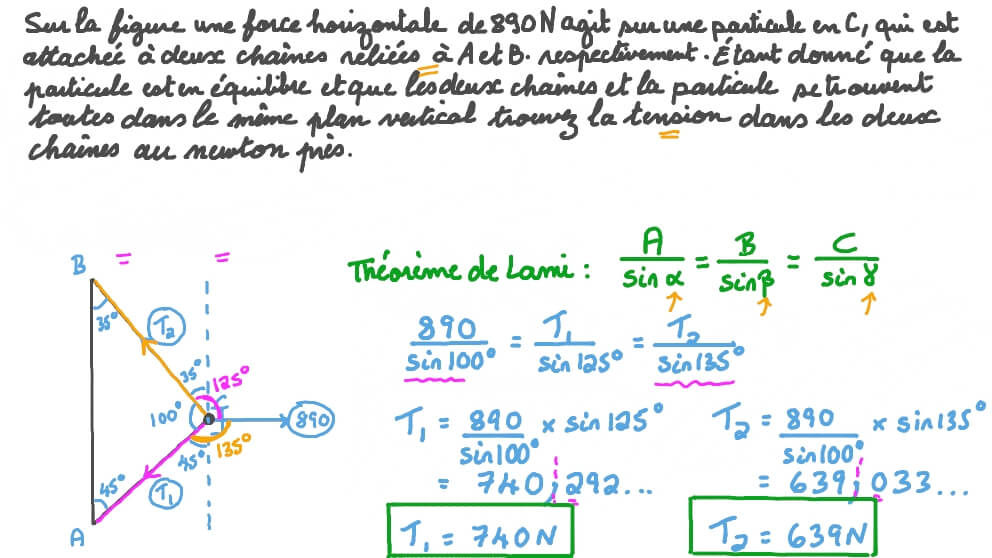 Sur la figure une force horizontale de 890 N agit sur une particule en C, qui est
attachée à deux chaînes reliées à A et B. respectivement. Étant donné que la
particule est en équilibre et que les deux chaînes et la particule se trouvent
toutes dans le même plan vertical trouvez la tension dans les deux
chaînes au newton près.
Théorème de Lami : A/sin α = B/sin β = C/sin γ
890/sin 100° = T₁/sin 125° = T₂/sin 135°
T₁ = 890/sin 100° × sin 125°
= 740,292...
T₁ = 740 N
T₂ = 890/sin 100° × sin 135°
= 639,033...
T₂ = 639 N
B
35°
T₂
35°
125°
100°
890
135°
45°
45°
T₁
A